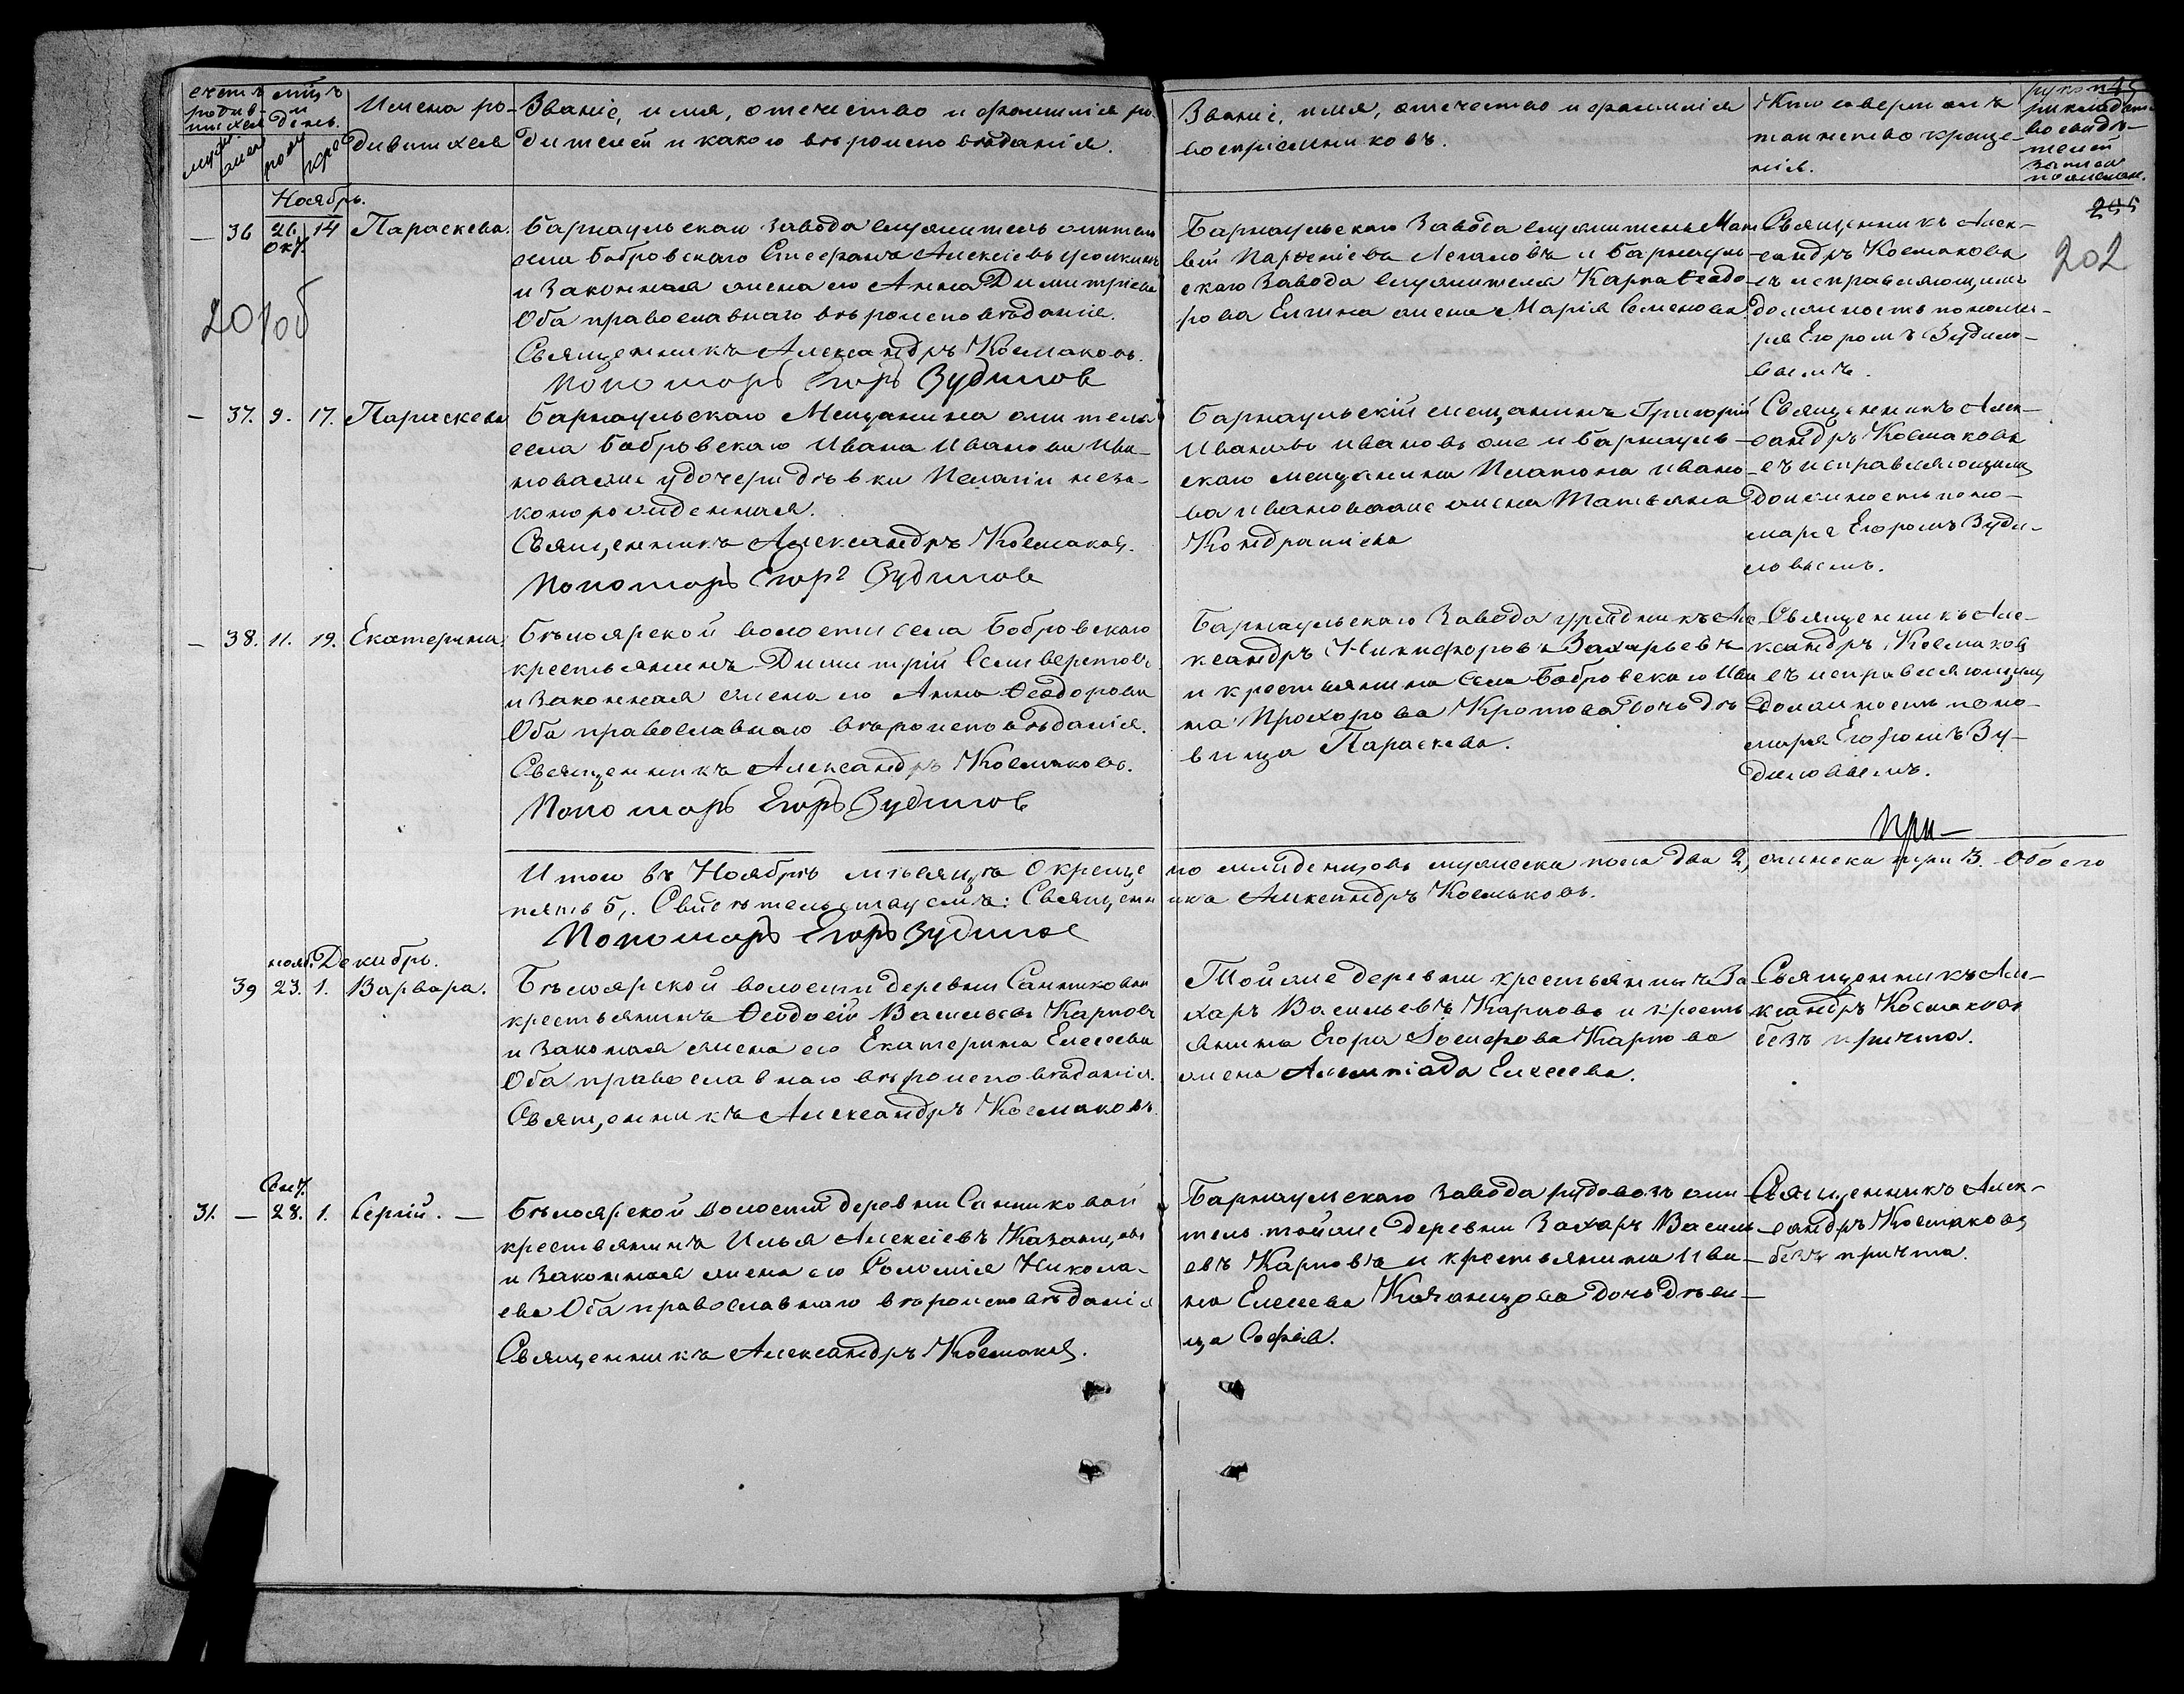 счетъ родив-шихся
мѣсяцъ и день.
Имена ро-
дившихся
Званіе, имя, отечество и фамилія ро-
дителей и какого вѣроисповѣданія.
Званіе, имя, отечество и фамилія
воспріемниковъ.
Кто совершалъ
таинство креще-
нія.
рукопри-
кладст-
во свидѣ-
телей
записи
по желан.
Ноябрь.
205
202
201об
— 36 26 окт. 14 Параскева.
Барнаульскаго завода служитель житель
села Бобровскаго Стефанъ Алексѣевъ
и законная жена его Анна Димитріева
Оба православнаго вѣроисповѣданія.
Священникъ Александръ Космаковъ.
Пономарь Егоръ Зудилов
Барнаульскаго Завода служитель Мат
вей Парфеніевъ и Барнауль-
скаго Завода служителя Карпа Ѳеодо-
рова Елгина жена Марія Семенова
Священникъ Алек-
сандръ Космаковъ
съ исправляющимъ
должность понома-
ря Егоромъ Зудило-
вымъ.
— 37. 9. 17. Параскева
Барнаульскаго Мещанина жителя
села Бобровскаго Ивана Иванова Ива-
новаже у дочери дѣвки Пелагіи неза-
конорожденная.
Священникъ Александръ Космаковъ.
Пономарь Егоръ Зудилов
Барнаульскій мещанинъ Григорій
Ивановъ Ивановъ же и Барнауль-
скаго мещанина Платона Ивано-
ва Ивановаже жена Татьяна
Кондратьева
Священникъ Алек-
сандръ Космаковъ
съ исправляющимъ
должность поно-
маря Егоромъ Зуди-
ловымъ.
— 38. 11. 19. Екатерина.
Бѣлоярской волости села Бобровскаго
крестьянинъ Димитрій Селиверстовъ
и законная жена его Анна Ѳеодорова
Оба православнаго вѣроисповѣданія.
Священникъ Александръ Космаковъ.
Пономарь Егоръ Зудилов
Барнаульскаго Завода урядникъ Але-
ксандръ Никифоровъ Захарьевъ
и крестьянина села Бобровскаго Ива
на Прохорова Кротова дочь дѣ
вица Параскева.
Священникъ Але-
ксандръ Космаковъ
съ исправляющимъ
должность поно-
маря Егоромъ Зу-
диловымъ.
При-
Итого въ Ноябрѣ мѣсяцѣ окреще но младенцовъ мужеска пола два 2, женска три 3. Обоего
пять 5,. Свидѣтельствуемъ: Священни ка Александръ Космаковъ.
Пономарь Егоръ Зудилов
Декабрь.
39 нояб. 23. 1. Варвара.
Бѣлоярской волости деревни Санниковой
крестьянинъ Ѳеодосій Васильевъ Карповъ
и законная жена его Екатерина Елесеева
Оба православнаго вѣроисповѣданія.
Священникъ Александръ Космаковъ.
Тойже деревни крестьянинъ За
харъ Васильевъ Карповъ и кресть
янина Егора Іосифова Карпова
жена Алимпіада Елесеева.
Священникъ Але-
ксандръ Космаковъ
безъ причта.
31. — Сент. 28. 1. Сергій. —
Бѣлоярской волости деревни Санниковой
крестьянинъ Илья Алексѣевъ Казанцовъ
и законная жена его Соломія Никола-
ева Оба православнаго вѣроисповѣданія
Священникъ Александръ Космаковъ.
Барнаульскаго завода рудовозъ жи
тель тойже деревни Захаръ Василь
евъ Карповъ и крестьянина Ива-
на Елесеева Казанцова дочь дѣви-
ца Софія.
Священникъ Алек-
сандръ Космаковъ
безъ причта.